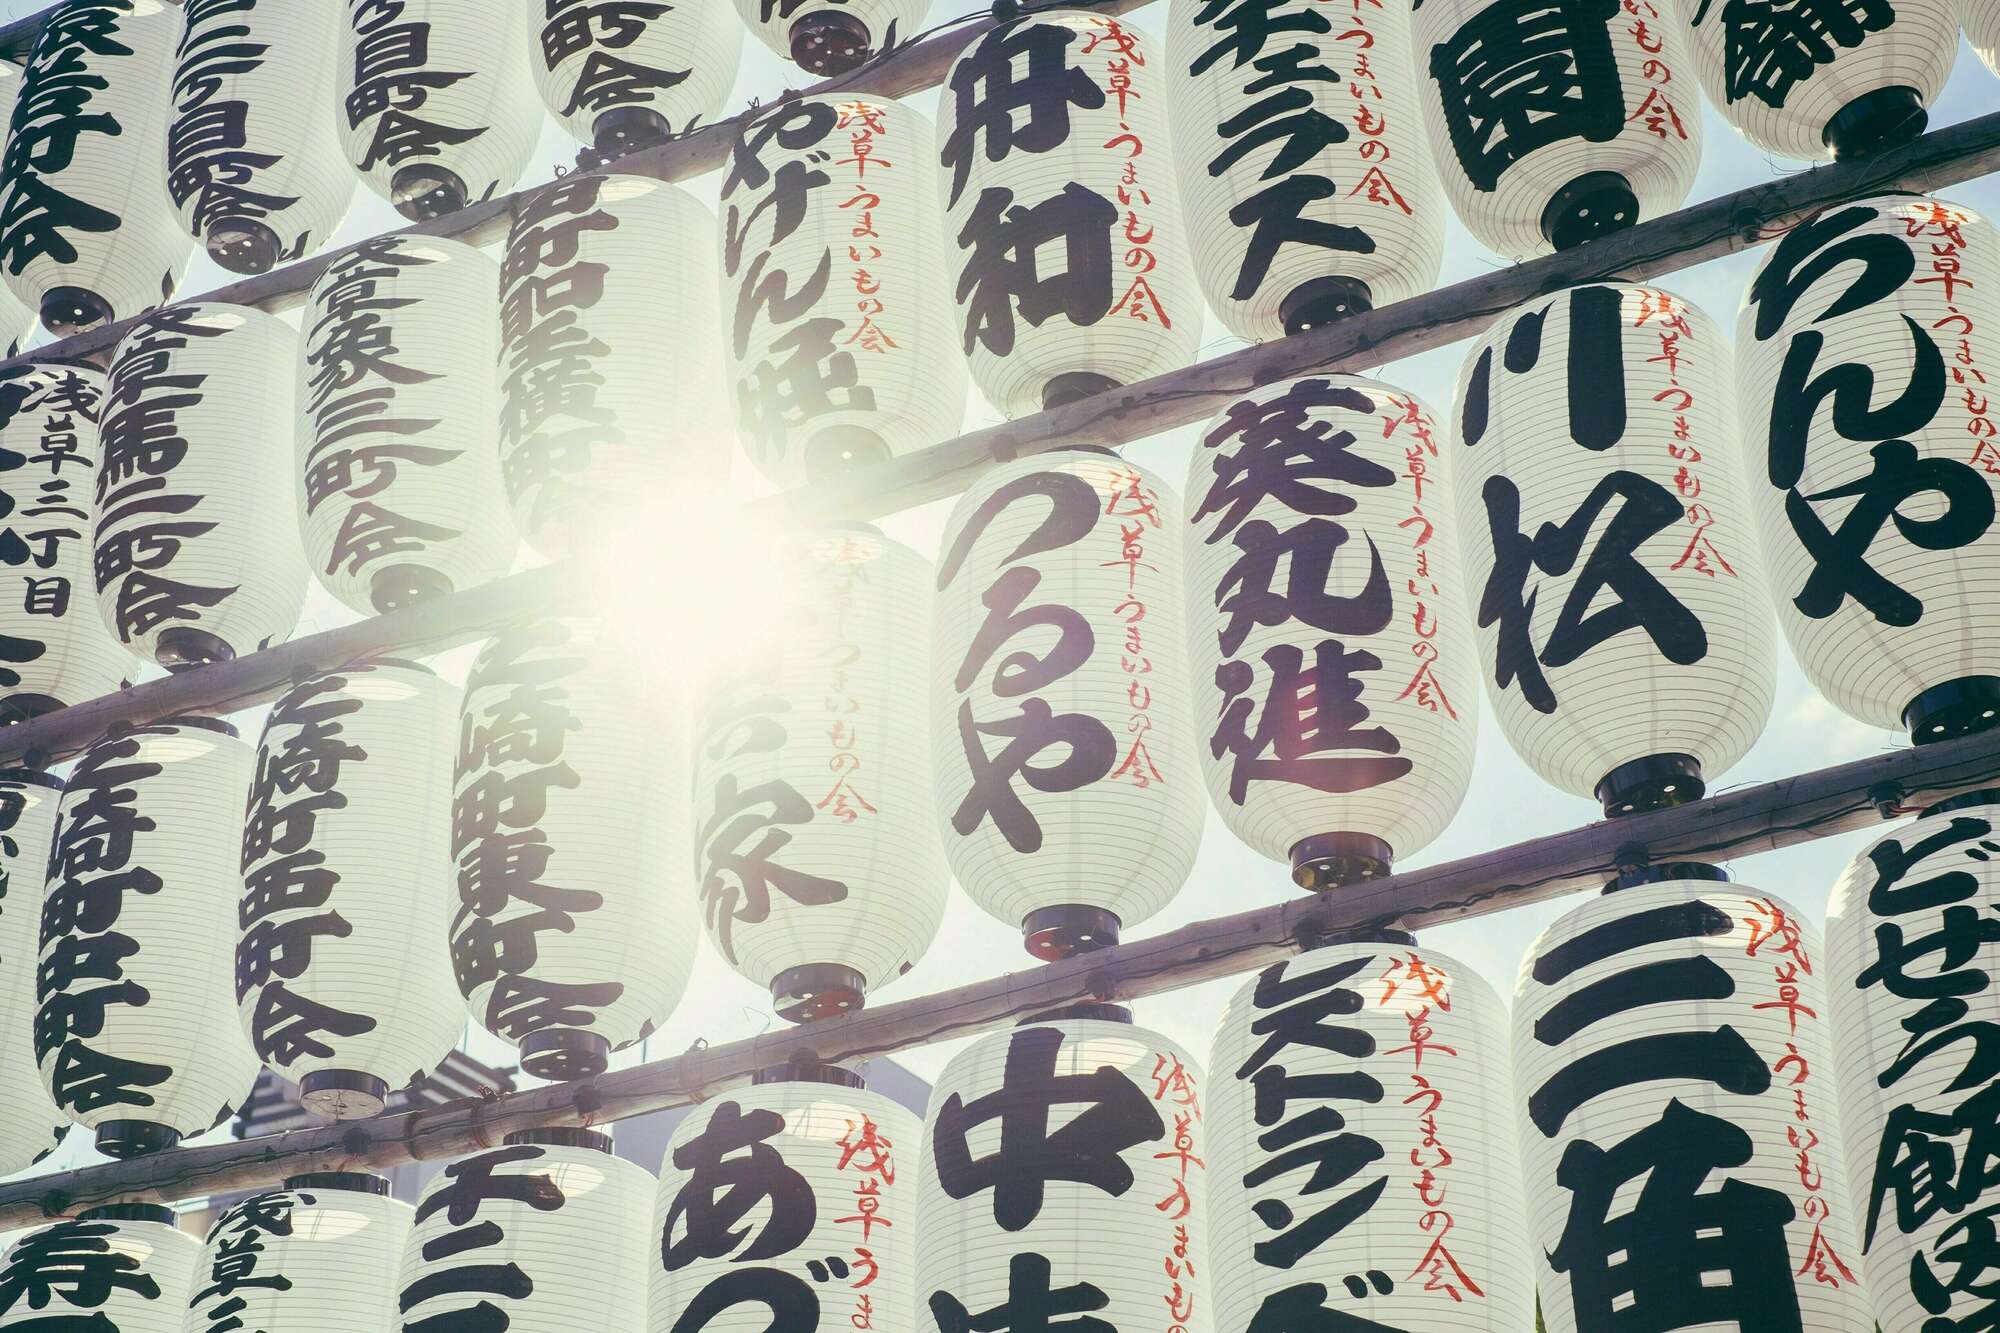 町会
二丁目町会
目町会
町会
やげん堀
浅草うまいもの会
舟和
浅草うまいもの会
チェラス
うまいもの会
園
いもの会
浅草三丁目
浅草馬二町会
浅草象三町会
聖横町
つるや
浅草うまいもの会
葵丸進
浅草うまいもの会
川松
浅草うまいもの会
ちんや
浅草うまいもの会
芝崎町中町会
芝崎町西町会
芝崎町東町会
家
浅草うまいもの会
寿
浅草
千二
あづ
浅草うま
中
浅草うまいもの
ストラング
浅草うまいもの会
三角
浅草うまいもの会
どぜう飯田